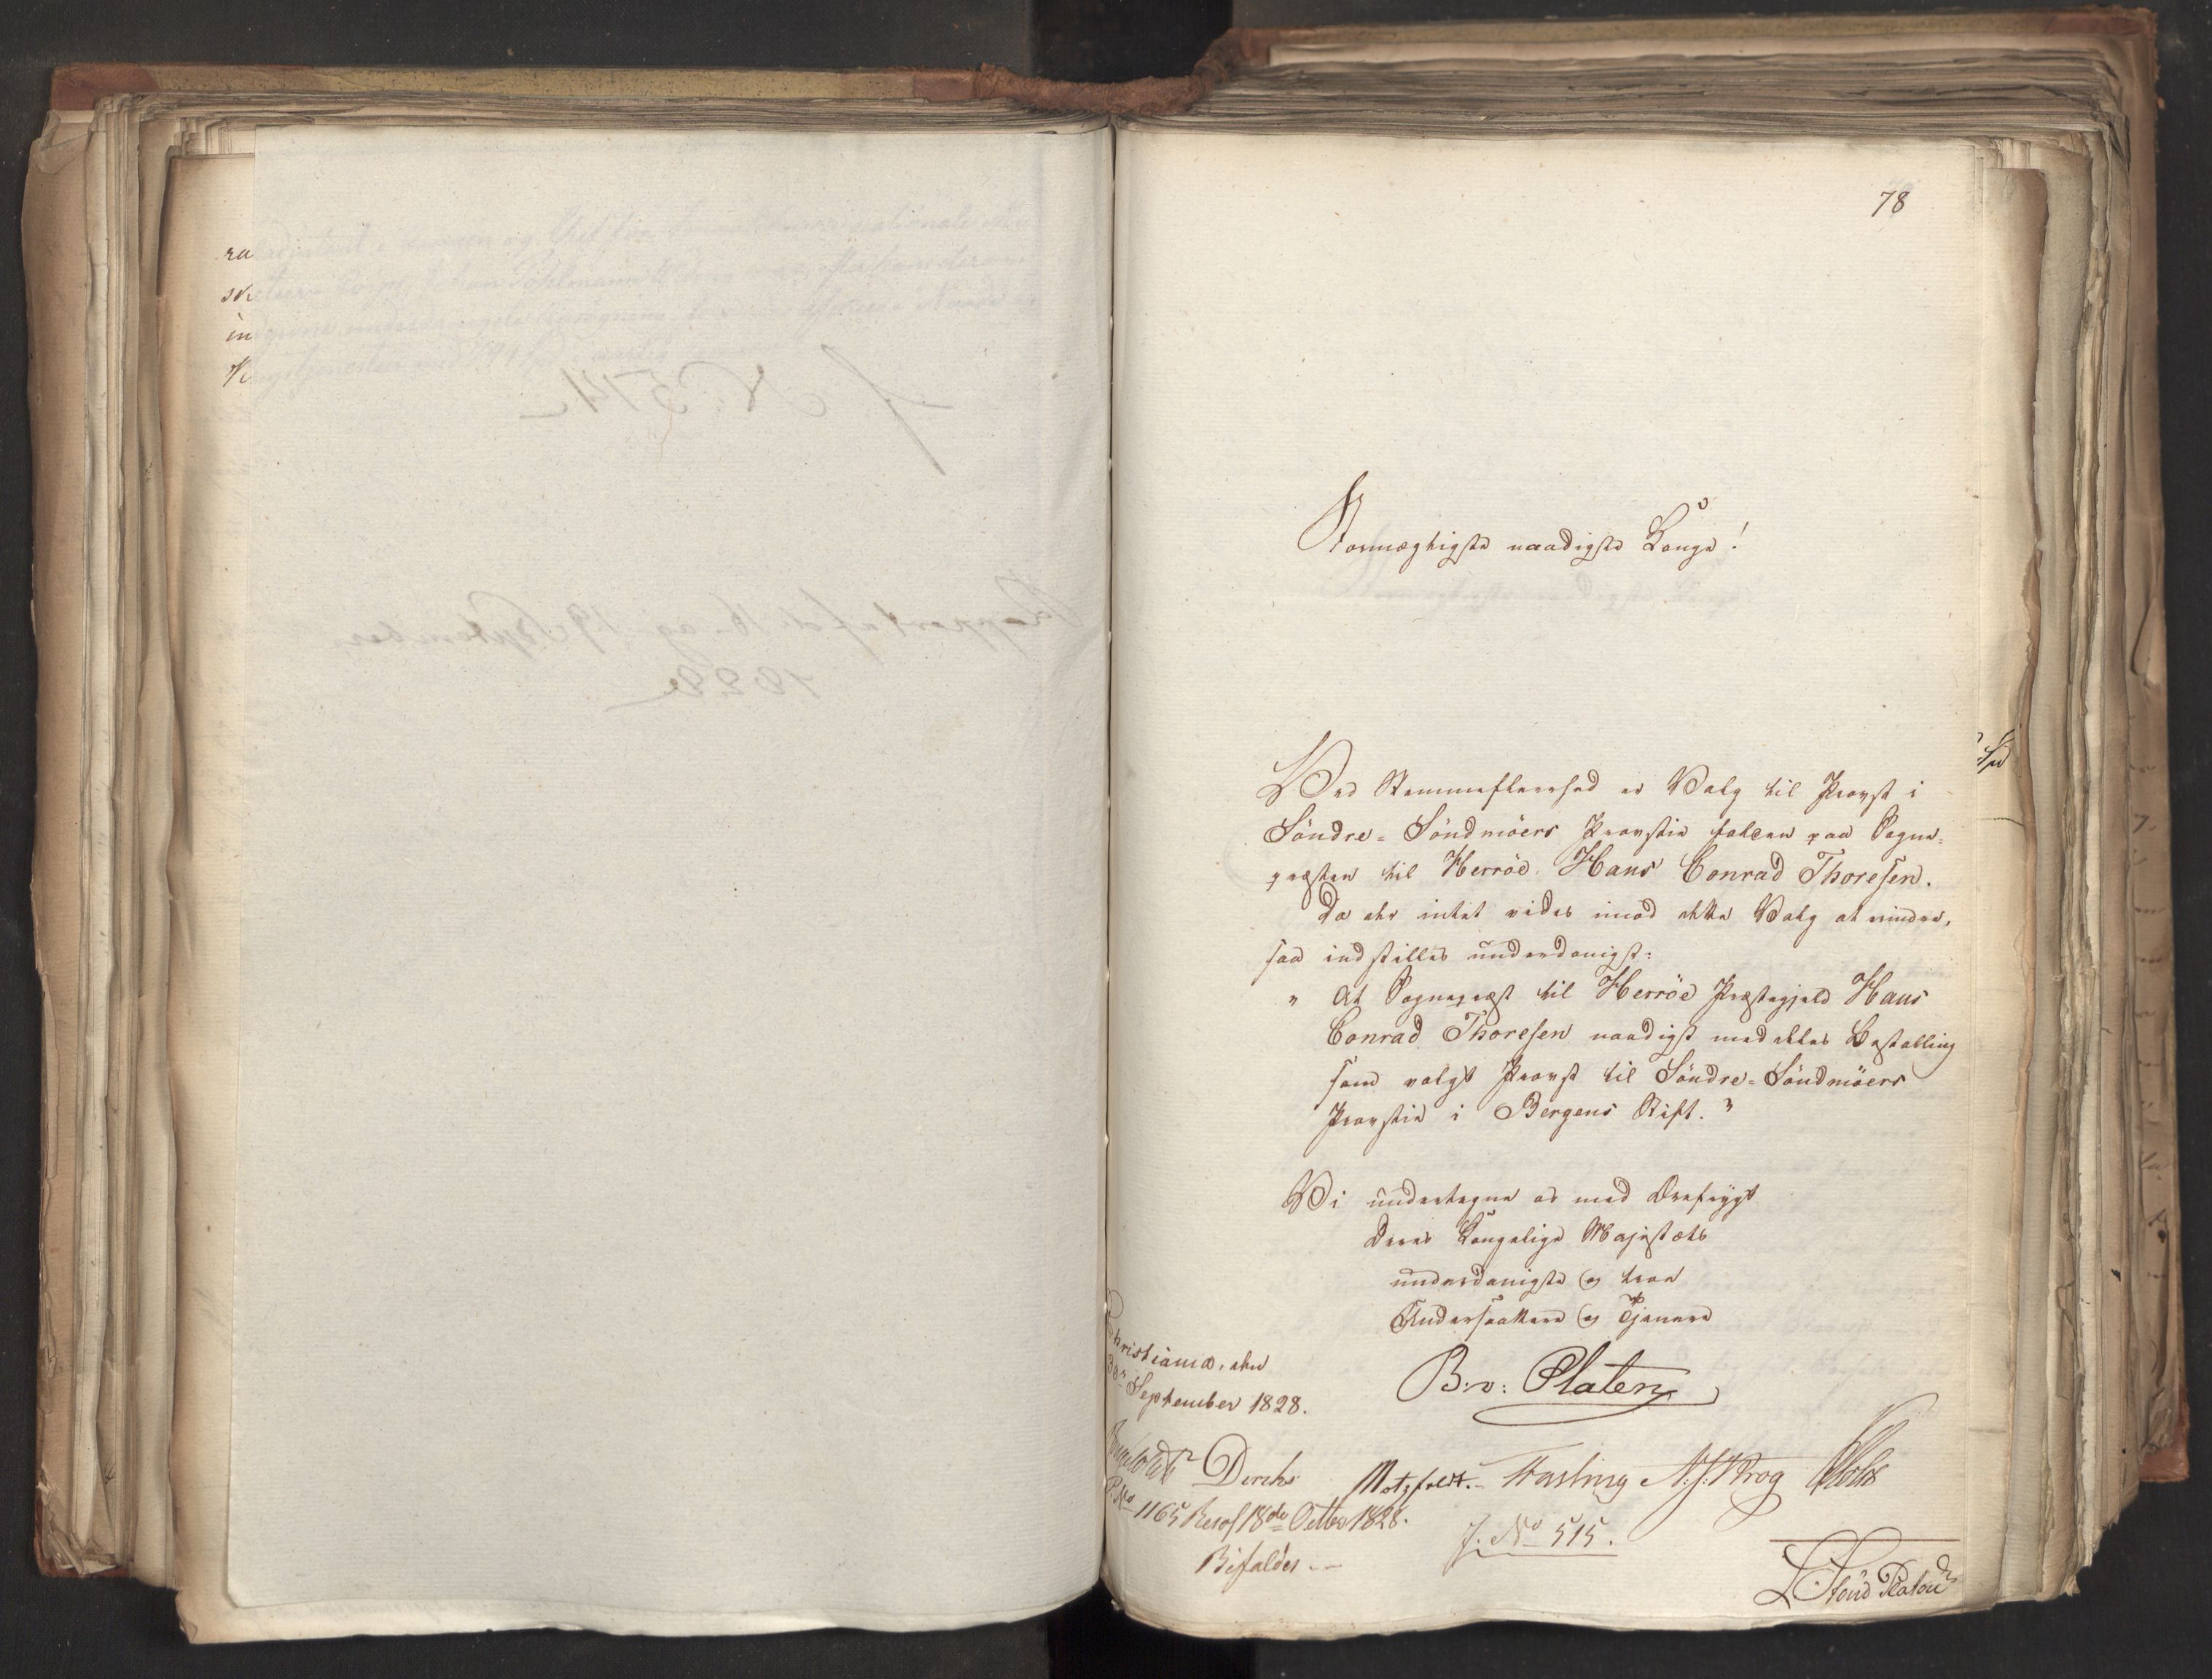 78
Stormægtigste naadigste Konge!
Ved Stemmefleerhed er Valg til Provst i
Söndre-Söndmöers Provstie falden paa Sogne-
præsten til Herröe Hans Conrad Thoresen.
Da der intet vides imod dette Valg at erindre,
saa indstilles underdanigst:
" At Sognepræst til Herröe Præstegjeld Hans
Conrad Thoresen naadigst meddeles Bestalling
som valgt Provst til Söndre-Söndmöers
Provstie i Bergens Stift. "
Vi undertegne os med Ærefrygt
Deres Kongelige Majestæts
underdanigste og troe
Undersaatter og Tjenere
Christiania, den
September 1828.
B. v: Platen
Diriks Motzfeldt. Fasting N. J. Krog Holst
No 1165 Resol 18de Octbr 1828.
Bifaldes
J. No 515.
L. Stoud Platou
J. No 514
Rapport af de 16 og 19 September
1828